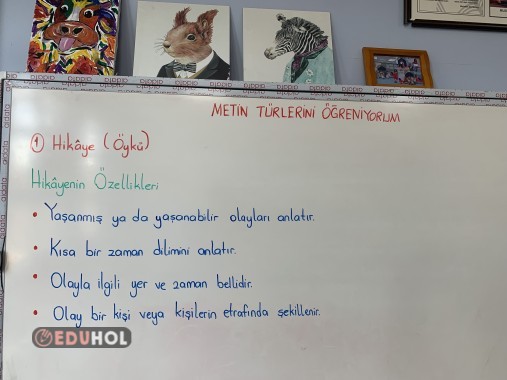 METİN TÜRLERİNİ ÖĞRENİYORUM
1 Hikâye (Öykü)
Hikâyenin Özellikleri
• Yaşanmış ya da yaşanabilir olayları anlatır.
• Kısa bir zaman dilimini anlatır.
• Olayla ilgili yer ve zaman bellidir.
• Olay bir kişi veya kişilerin etrafında şekillenir.
EDUHOL